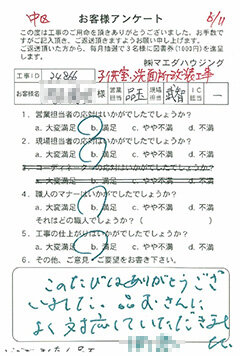 中区 お客様アンケート 6/11
この度は工事のご用命を頂きありがとうございました。お手数で
すがご記入頂き、ご返送頂きますようお願い申し上げます。
ご返送頂いた方から、毎月抽選で3名様に図書券(1000円)を進呈
します。
㈱マエダハウジング
工事ID 24866 子供室、洗面所改装工事
お客様名 様 営業担当 現場担当 武智 IC担当 ー
1. 営業担当者の応対はいかがでしたでしょうか?
a. 大変満足 b. 満足 c. やや不満 d. 不満
2. 現場担当者の応対はいかがでしたでしょうか?
a. 大変満足 b. 満足 c. やや不満 d. 不満
3. コーディネーターの応対はいかがでしたでしょうか?
a. 大変満足 b. 満足 c. やや不満 d. 不満
4. 職人のマナーはいかがでしたでしょうか?
a. 大変満足 b. 満足 c. やや不満 d. 不満
それはどの職人でしょうか?( )
5. 工事の仕上がりはいかがでしたでしょうか?
a. 大変満足 b. 満足 c. やや不満 d. 不満
6. その他、ご意見・ご要望をお書き下さい。
このたびはありがとうござ
いました。品むさんに
よく対応していただきまし
た。